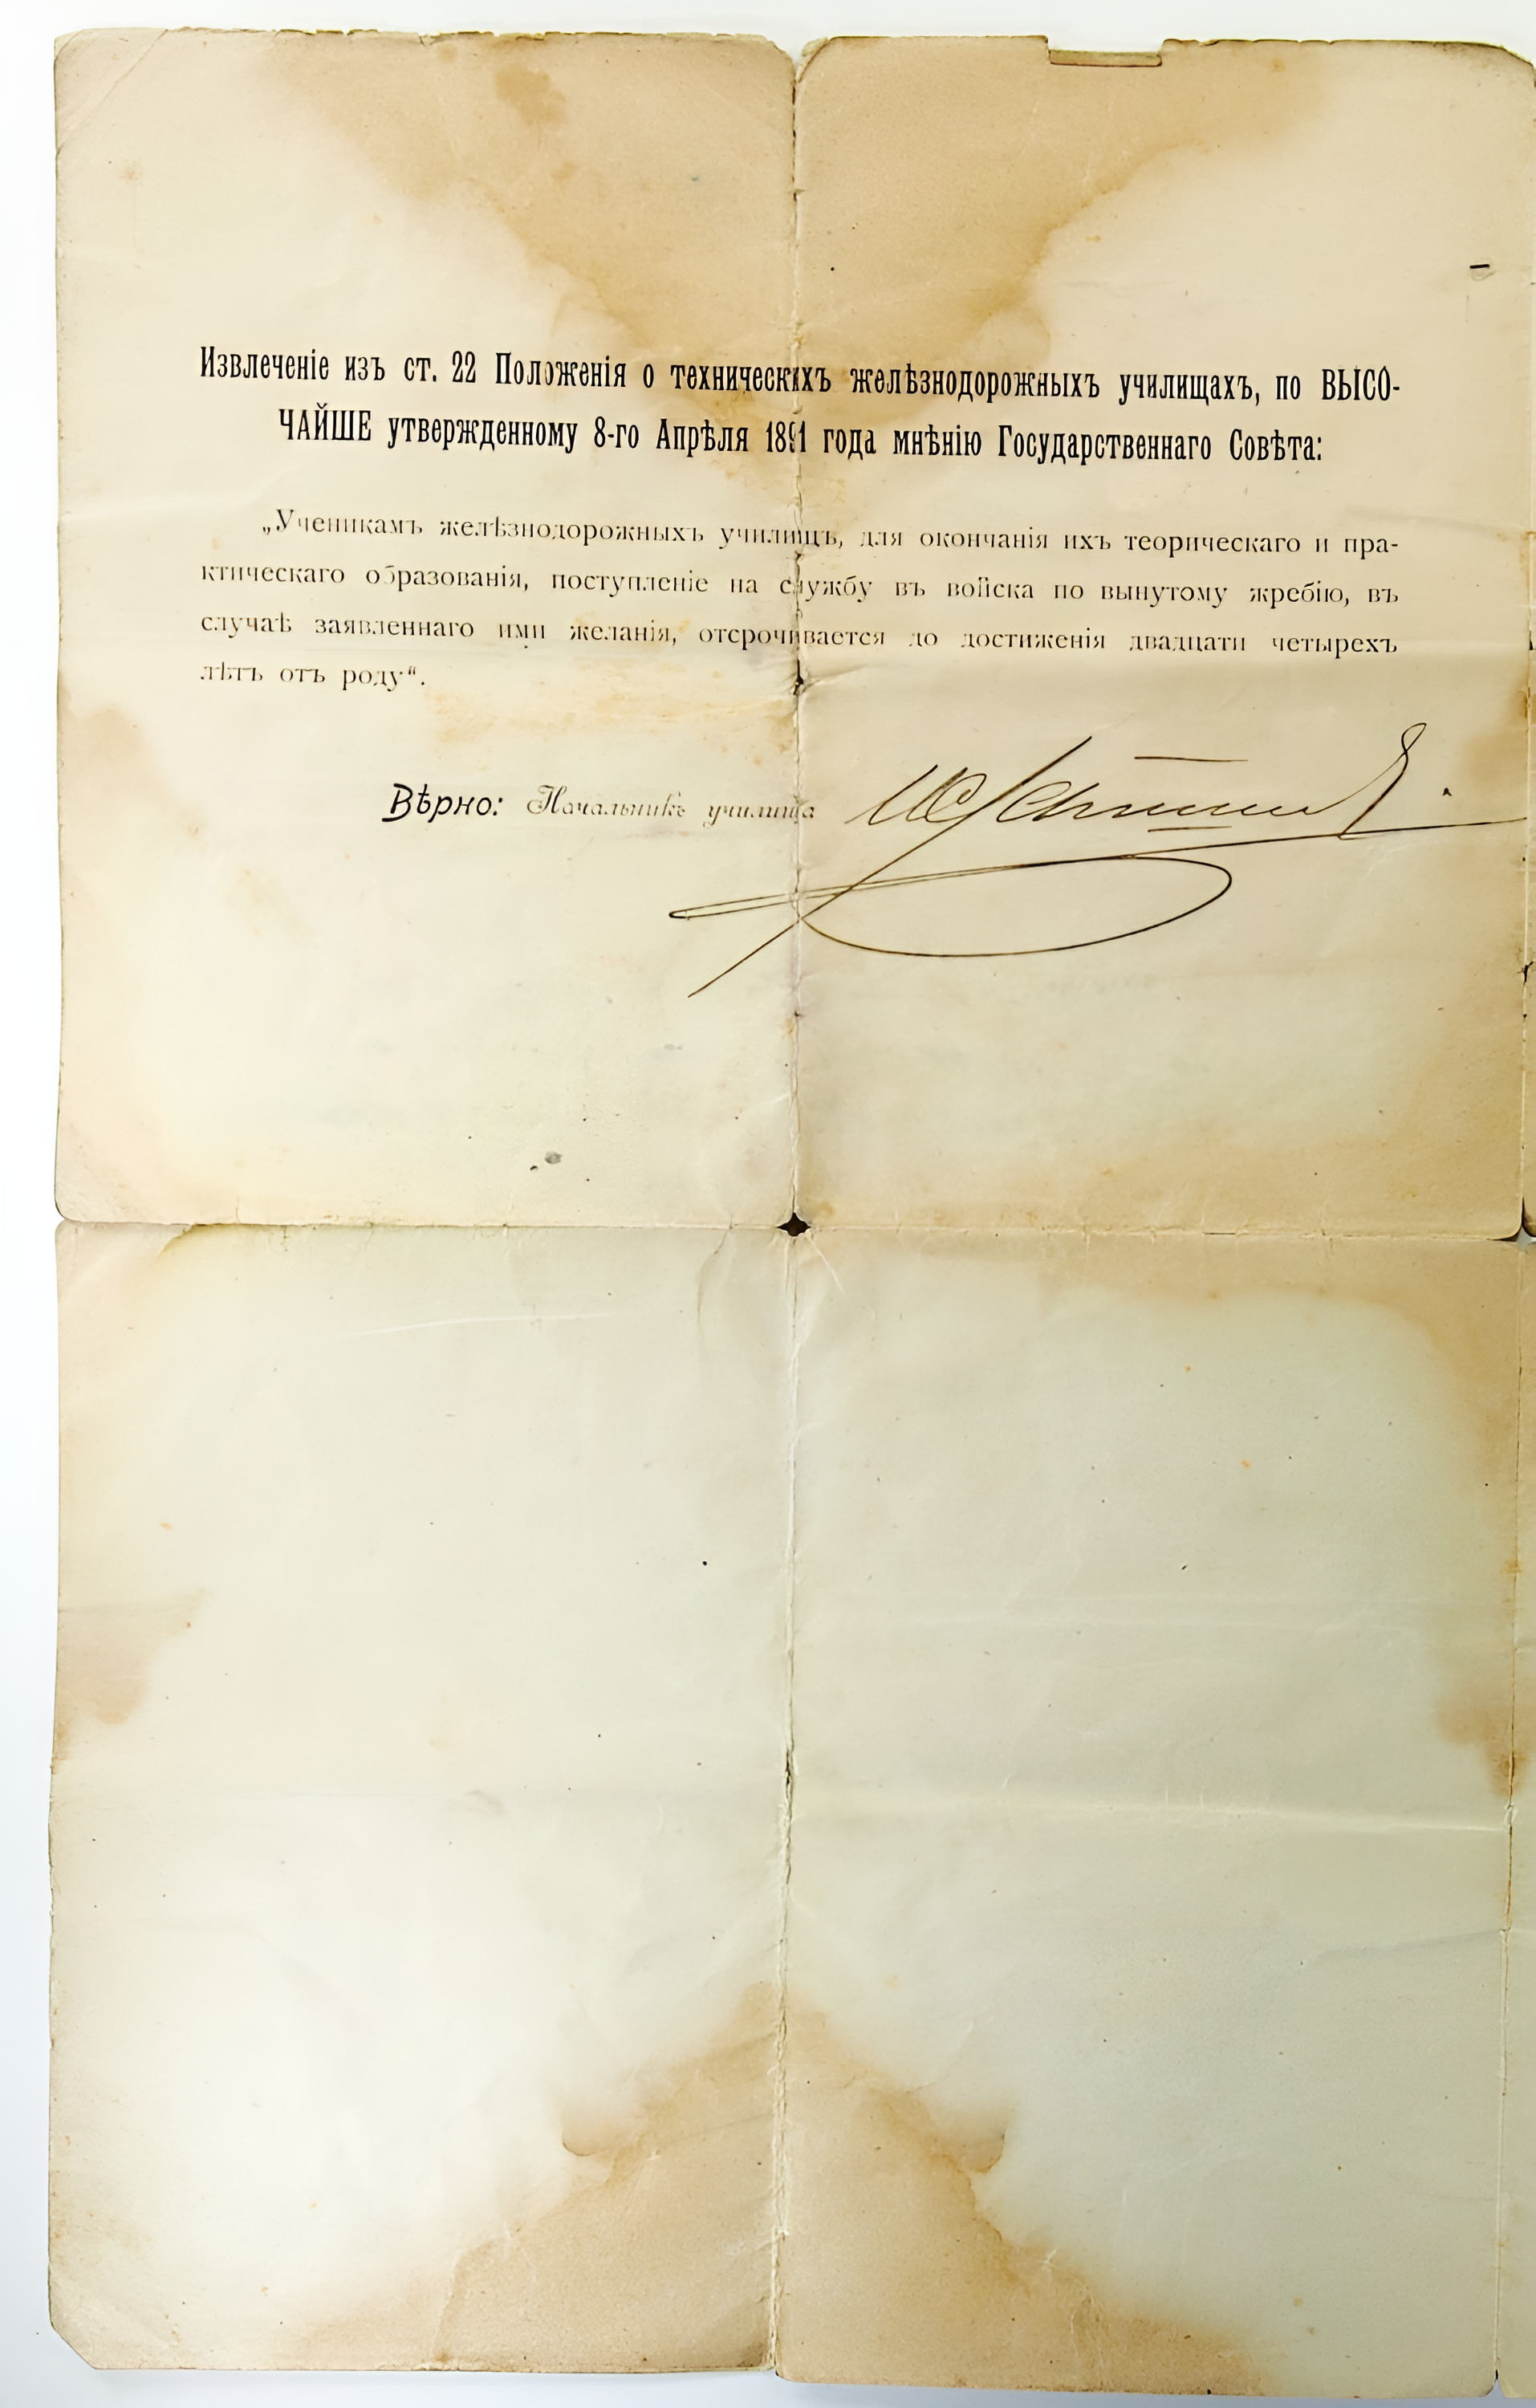 Извлеченіе изъ ст. 22 Положенія о техническихъ желѣзнодорожныхъ училищахъ, по ВЫСО-
ЧАЙШЕ утвержденному 8-го Апрѣля 1891 года мнѣнію Государственнаго Совѣта:
„Ученикамъ желѣзнодорожныхъ училищъ, для окончанія ихъ теорическаго и пра-
ктическаго образованія, поступленіе на службу въ войска по вынутому жребію, въ
случаѣ заявленнаго ими желанія, отсрочивается до достиженія двадцати четырехъ
лѣтъ отъ роду“.
Вѣрно: Начальникъ училища